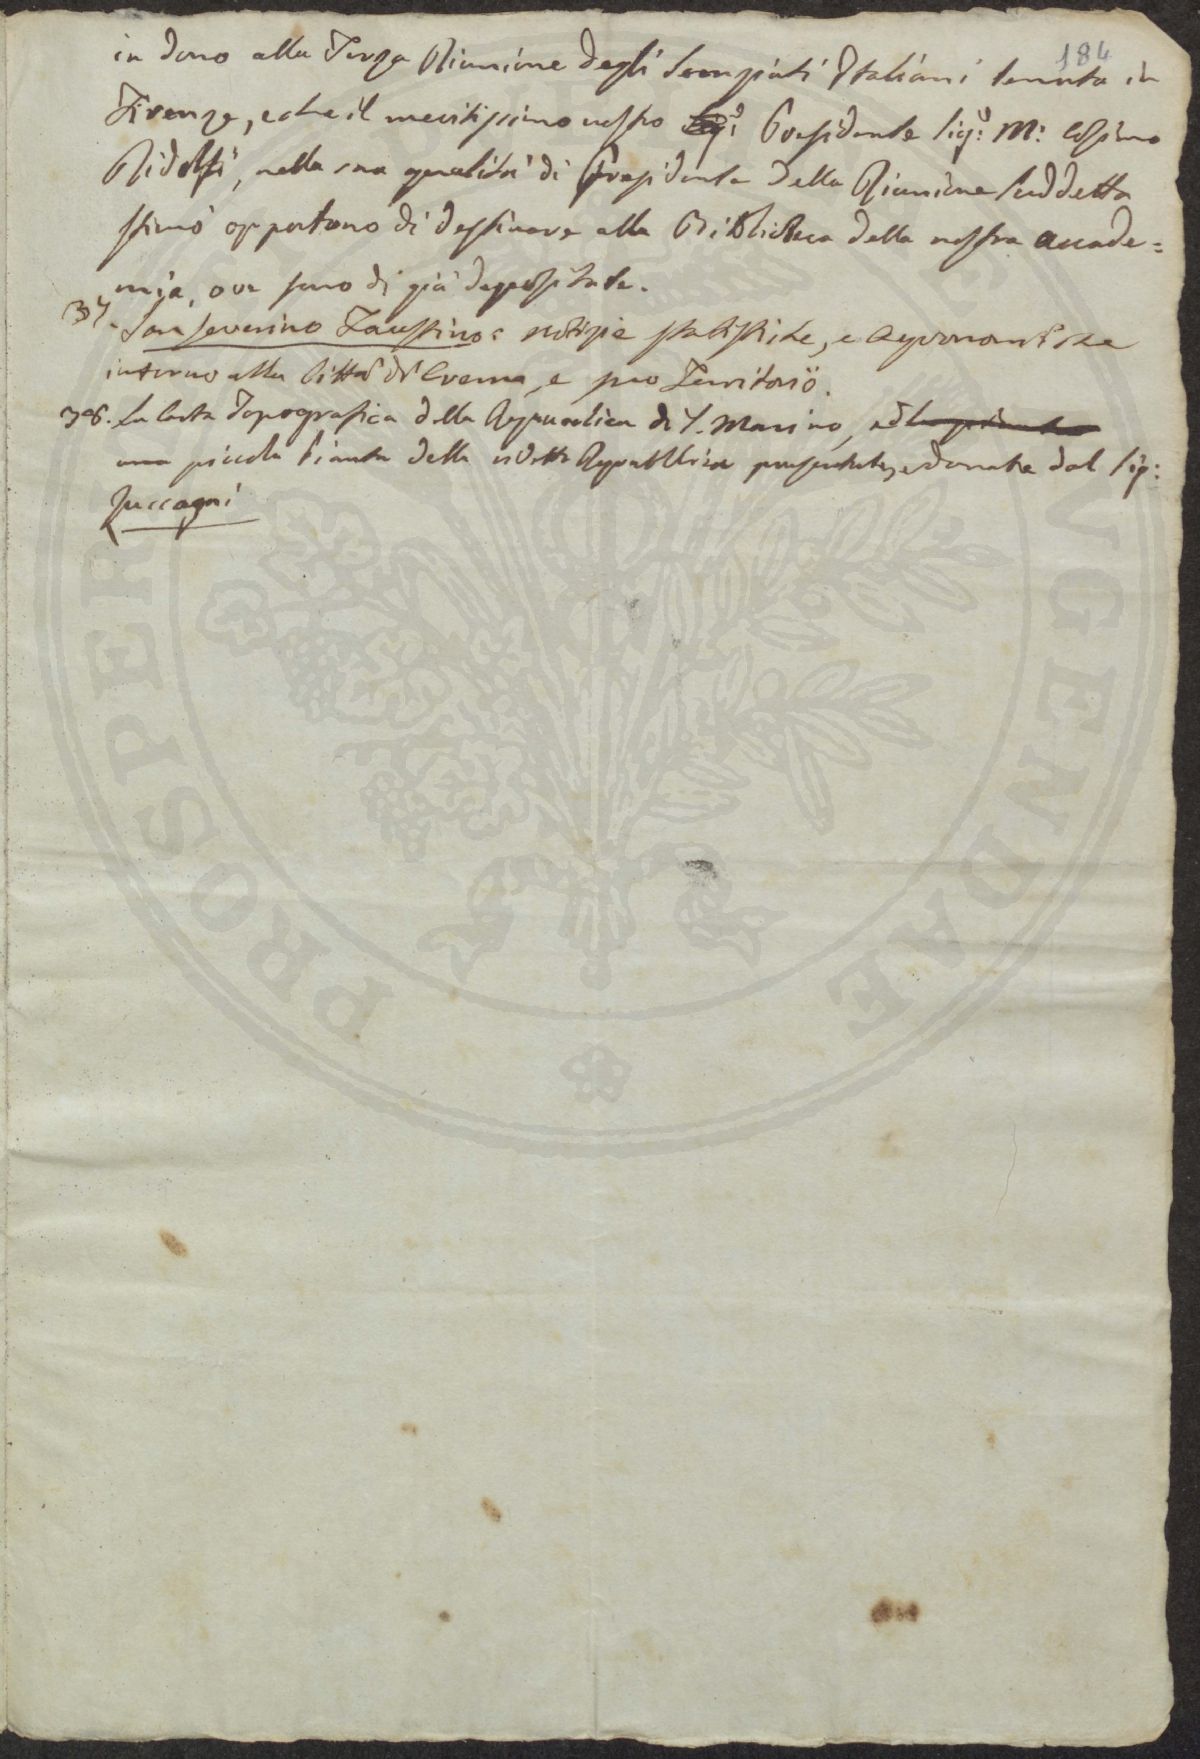 184
in dono alla Terza Riunione degli Scenziati Italiani tenuta in
Firenze, e che il meritissimo nostro Presidente Sig:e M: Cosimo
Ridolfi, nella sua qualità di Presidente della Riunione suddetta
stimò opportuno di destinare alla Biblioteca della nostra Accade=
mia, ove sono di già depositate.
37. San Severino Faustino: notizie statistiche, e Agronomiche
intorno alla Città di Crema, e suo Territorio.
38. La Carta Topografica della Repubblica di S. Marino, ed
una piccola Pianta della ridetta Repubblica presentate, e donate dal Sig:
Zuccagni
PROSPER
VGENDAE